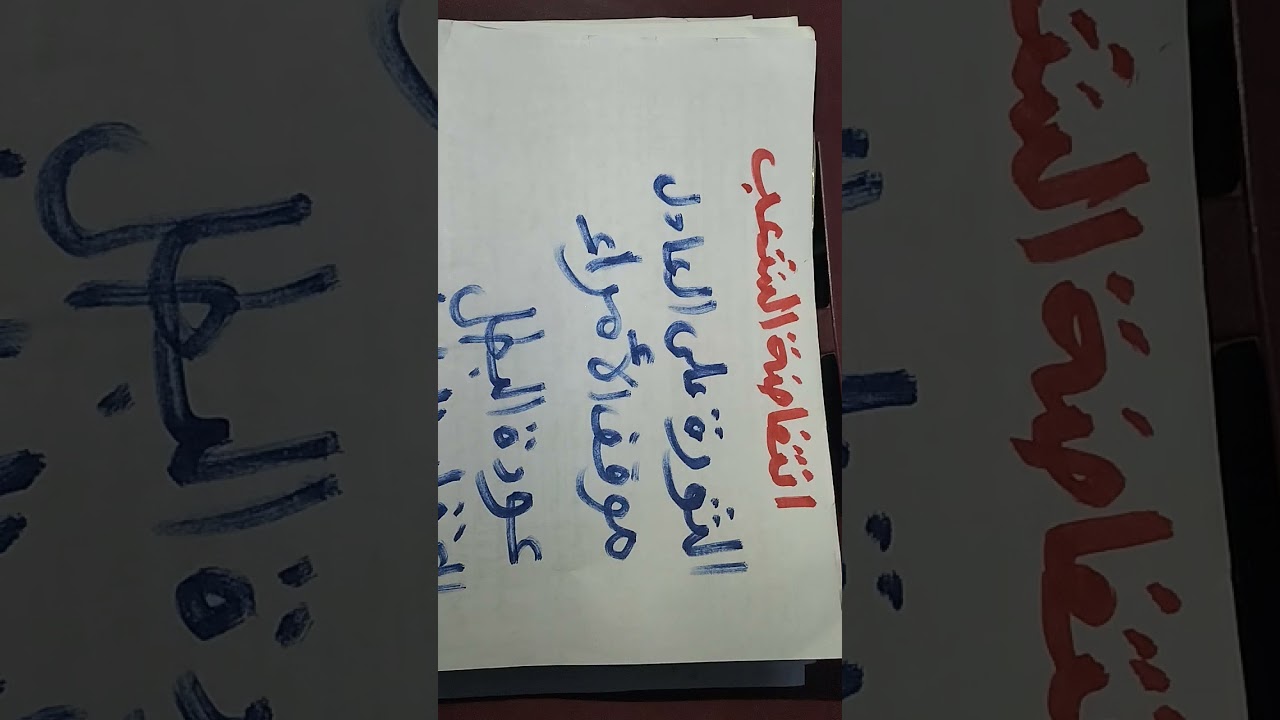 انتفاضة الشعب
الثورة على العادل
موقف الأمراء
عودة البطل